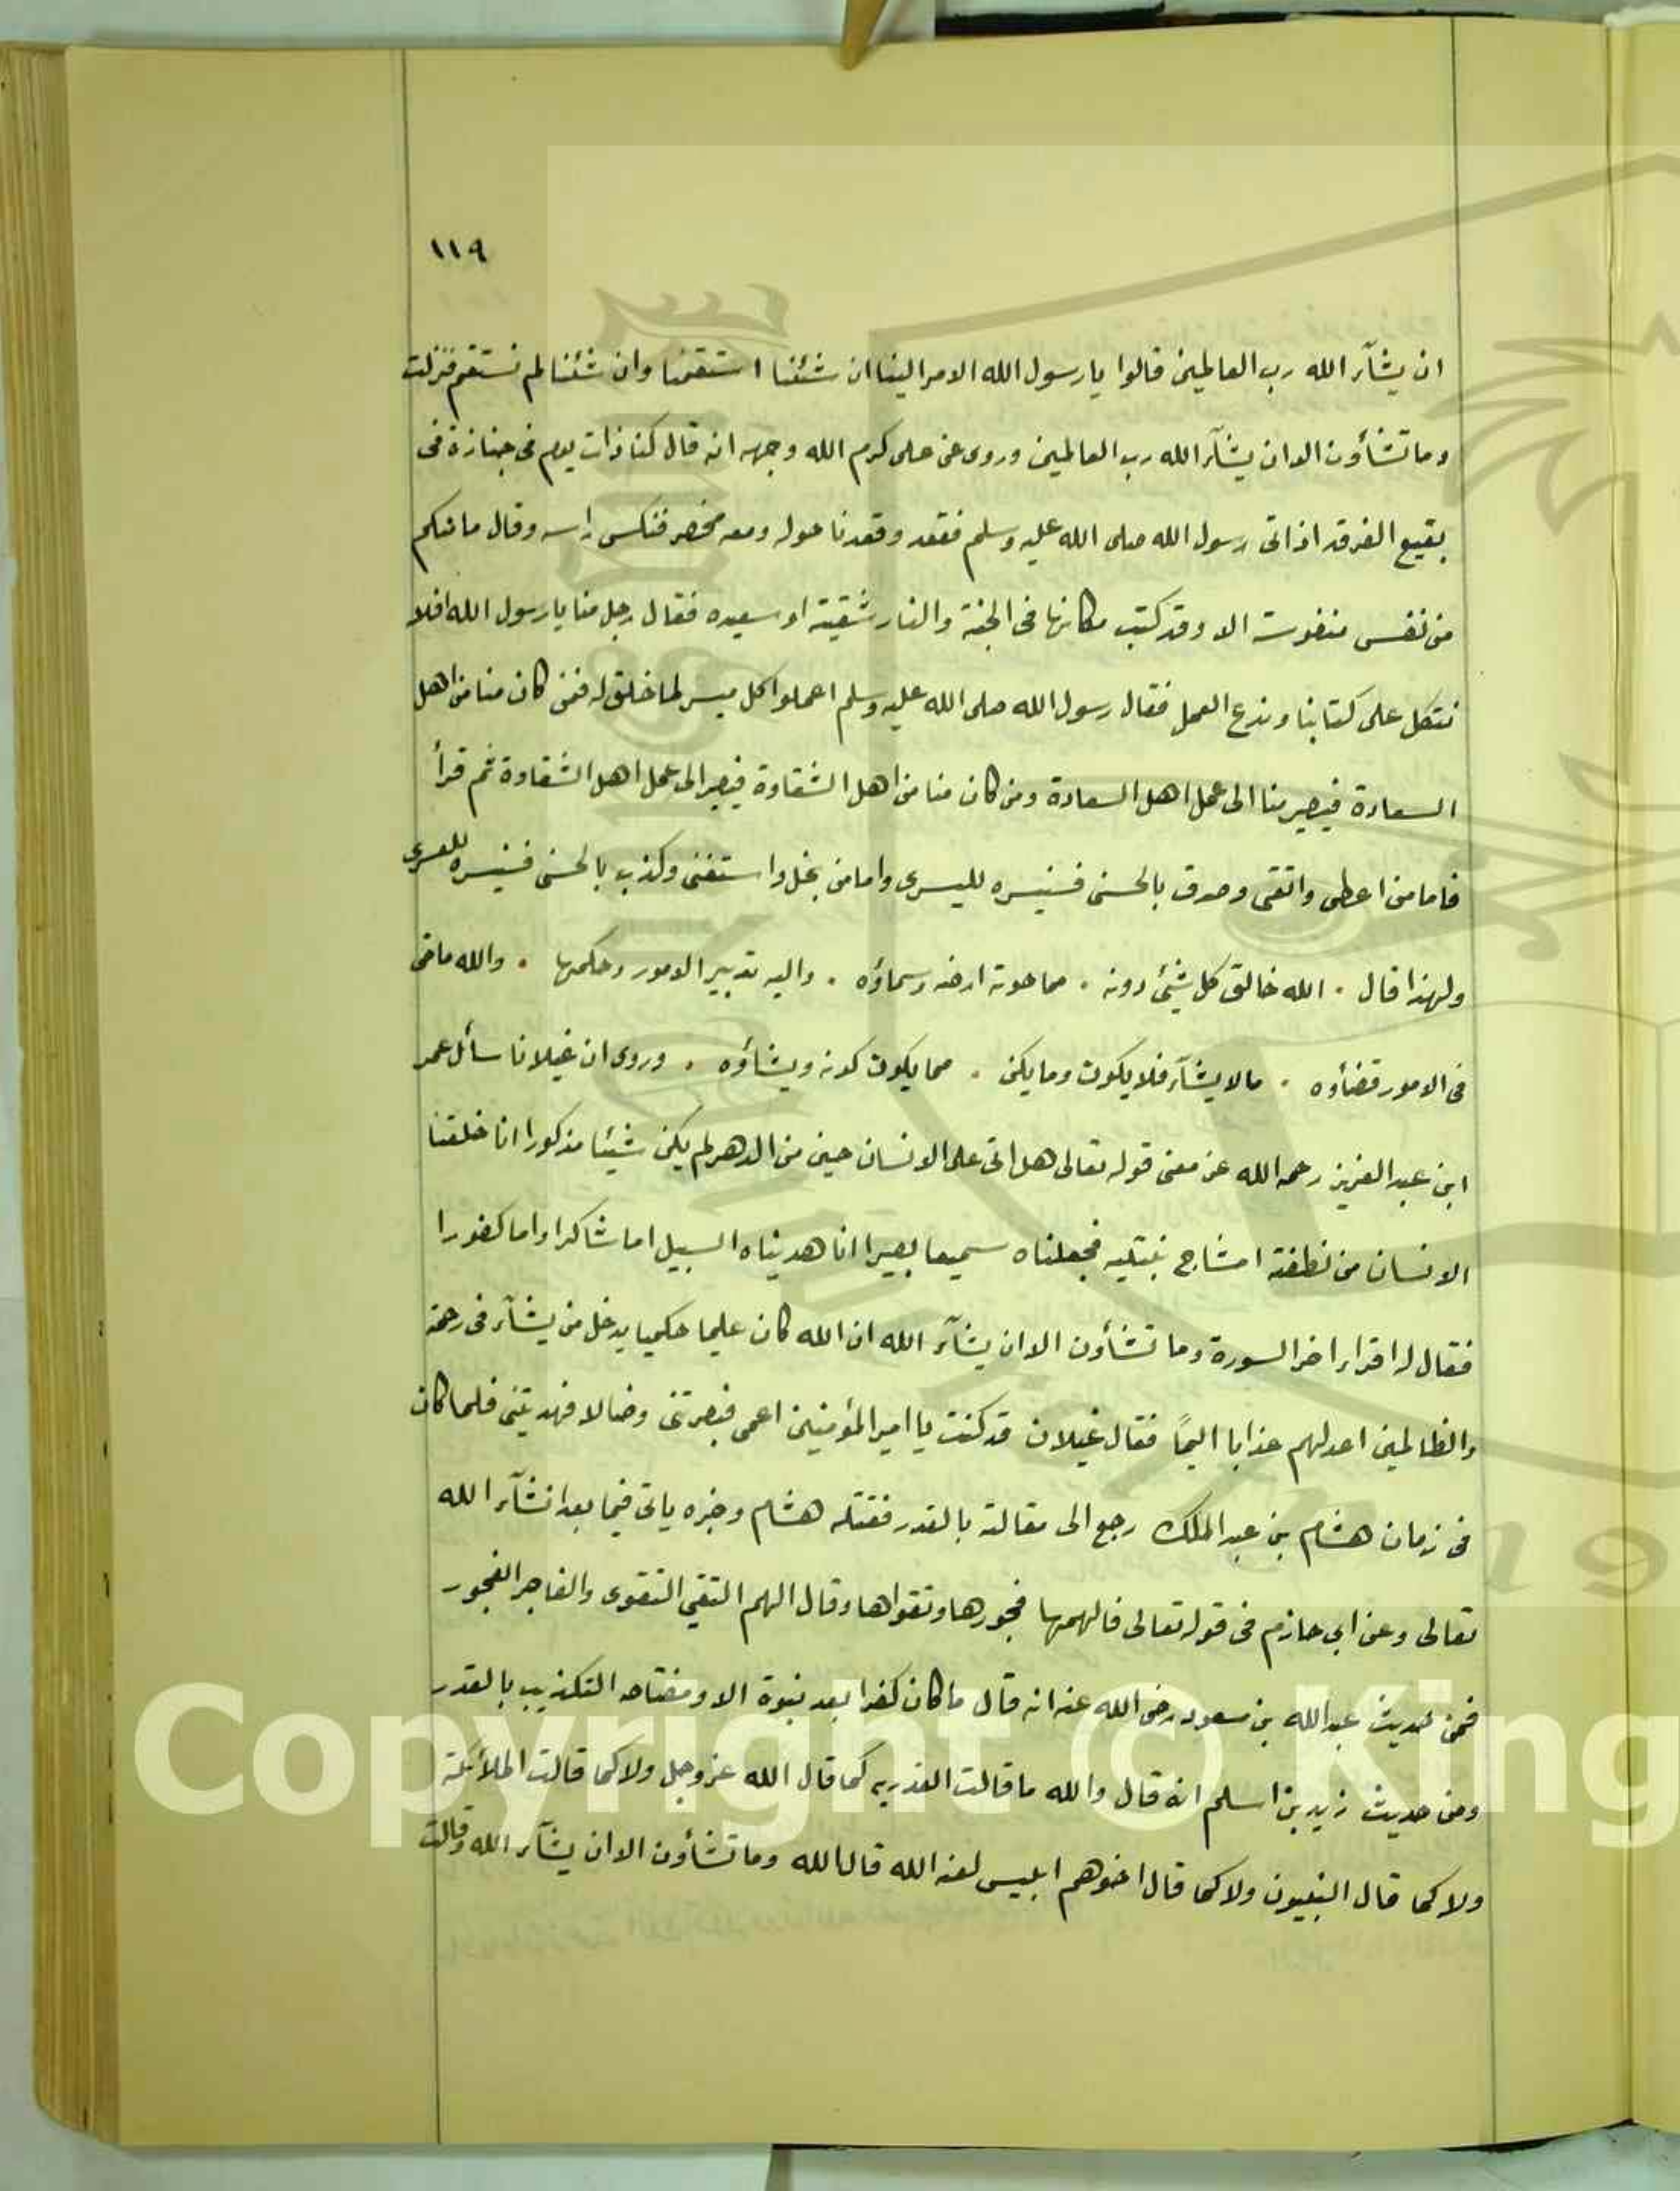 ١١٩
ان يشآء الله رب العالمين قالوا يا رسول الله الامر الينا ان شئنا استقمنا وان شئنا لم نستقم فنزلت
وما تشأون الا ان يشآء الله رب العالمين وروى عن على كرم الله وجهه انه قال كنا ذات يوم فى جنازة فى
بقيع الغرقد اذ اتى رسول الله صلى الله عليه وسلم فقعد وقعدنا حوله ومعه مخصر فنكس راسه وقال ما منكم
من نفس منفوسة الا وقد كتب مكانها فى الجنة والنار شقية او سعيده فقال رجل منا يا رسول الله افلا
نتكل على كتابنا وندع العمل فقال رسول الله صلى الله عليه وسلم اعملوا كل ميسر لما خلق له فمن كان منا من اهل
السعادة فيصير منا الى عمل اهل السعادة ومن كان منا من اهل الشقاوة فيصير الى عمل اهل الشقاوة ثم قرأ
فاما من اعطى واتقى وصدق بالحسنى فسنيسره لليسرى واما من بخل واستغنى وكذب بالحسنى فسنيسره للعسرى
ولهذا قال . الله خالق كل شيئ دونه . مما حوته ارضه وسماؤه . واليه تدبير الامور وحكمها . والله ماض
فى الامور قضأوه . مالا يشآء فلا يكون وما يكن . مما يكون كونه ويشاؤه . وروى ان غيلانا سأل عمر
ابن عبد العزيز رحمه الله عن معنى قوله تعالى هل اتى على الانسان حين من الدهر لم يكن شيئا مذكورا انا خلقنا
الانسان من نطفة امشاج نبتليه فجعلناه سميعا بصيرا انا هديناه السبيل اما شاكرا واما كفورا
فقال له اقرا اخر السورة وما تشأون الا ان يشآء الله ان الله كان عليما حكيما يدخل من يشآء فى رحمته
والظالمين اعد لهم عذابا اليمًا فقال غيلان قد كنت يا امير المؤمنين اعمى فبصرتنى وضالا فهديتنى فلما كان
فى زمان هشام بن عبد الملك رجع الى مقالته بالقدر فقتله هشام وخبره ياتى فيما بعد انشآء الله
تعالى وعن ابي حازم فى قوله تعالى فالهمها فجورها وتقواها وقال الهم التقي التقوى والفاجر الفجور
فمن حديث عبد الله بن مسعود رضى الله عنه انه قال ما كان كفرا بعد نبوة الا ومفتاحه التكذيب بالقدر
ومن حديث زيد بن اسلم انه قال والله ما قالت القدريه كما قال الله عز وجل ولا كما قالت الملائكة
ولا كما قال النبيون ولا كما قال اخوهم ابليس لعنه الله قال الله وما تشأون الا ان يشآء الله وقالت
Copyright © King